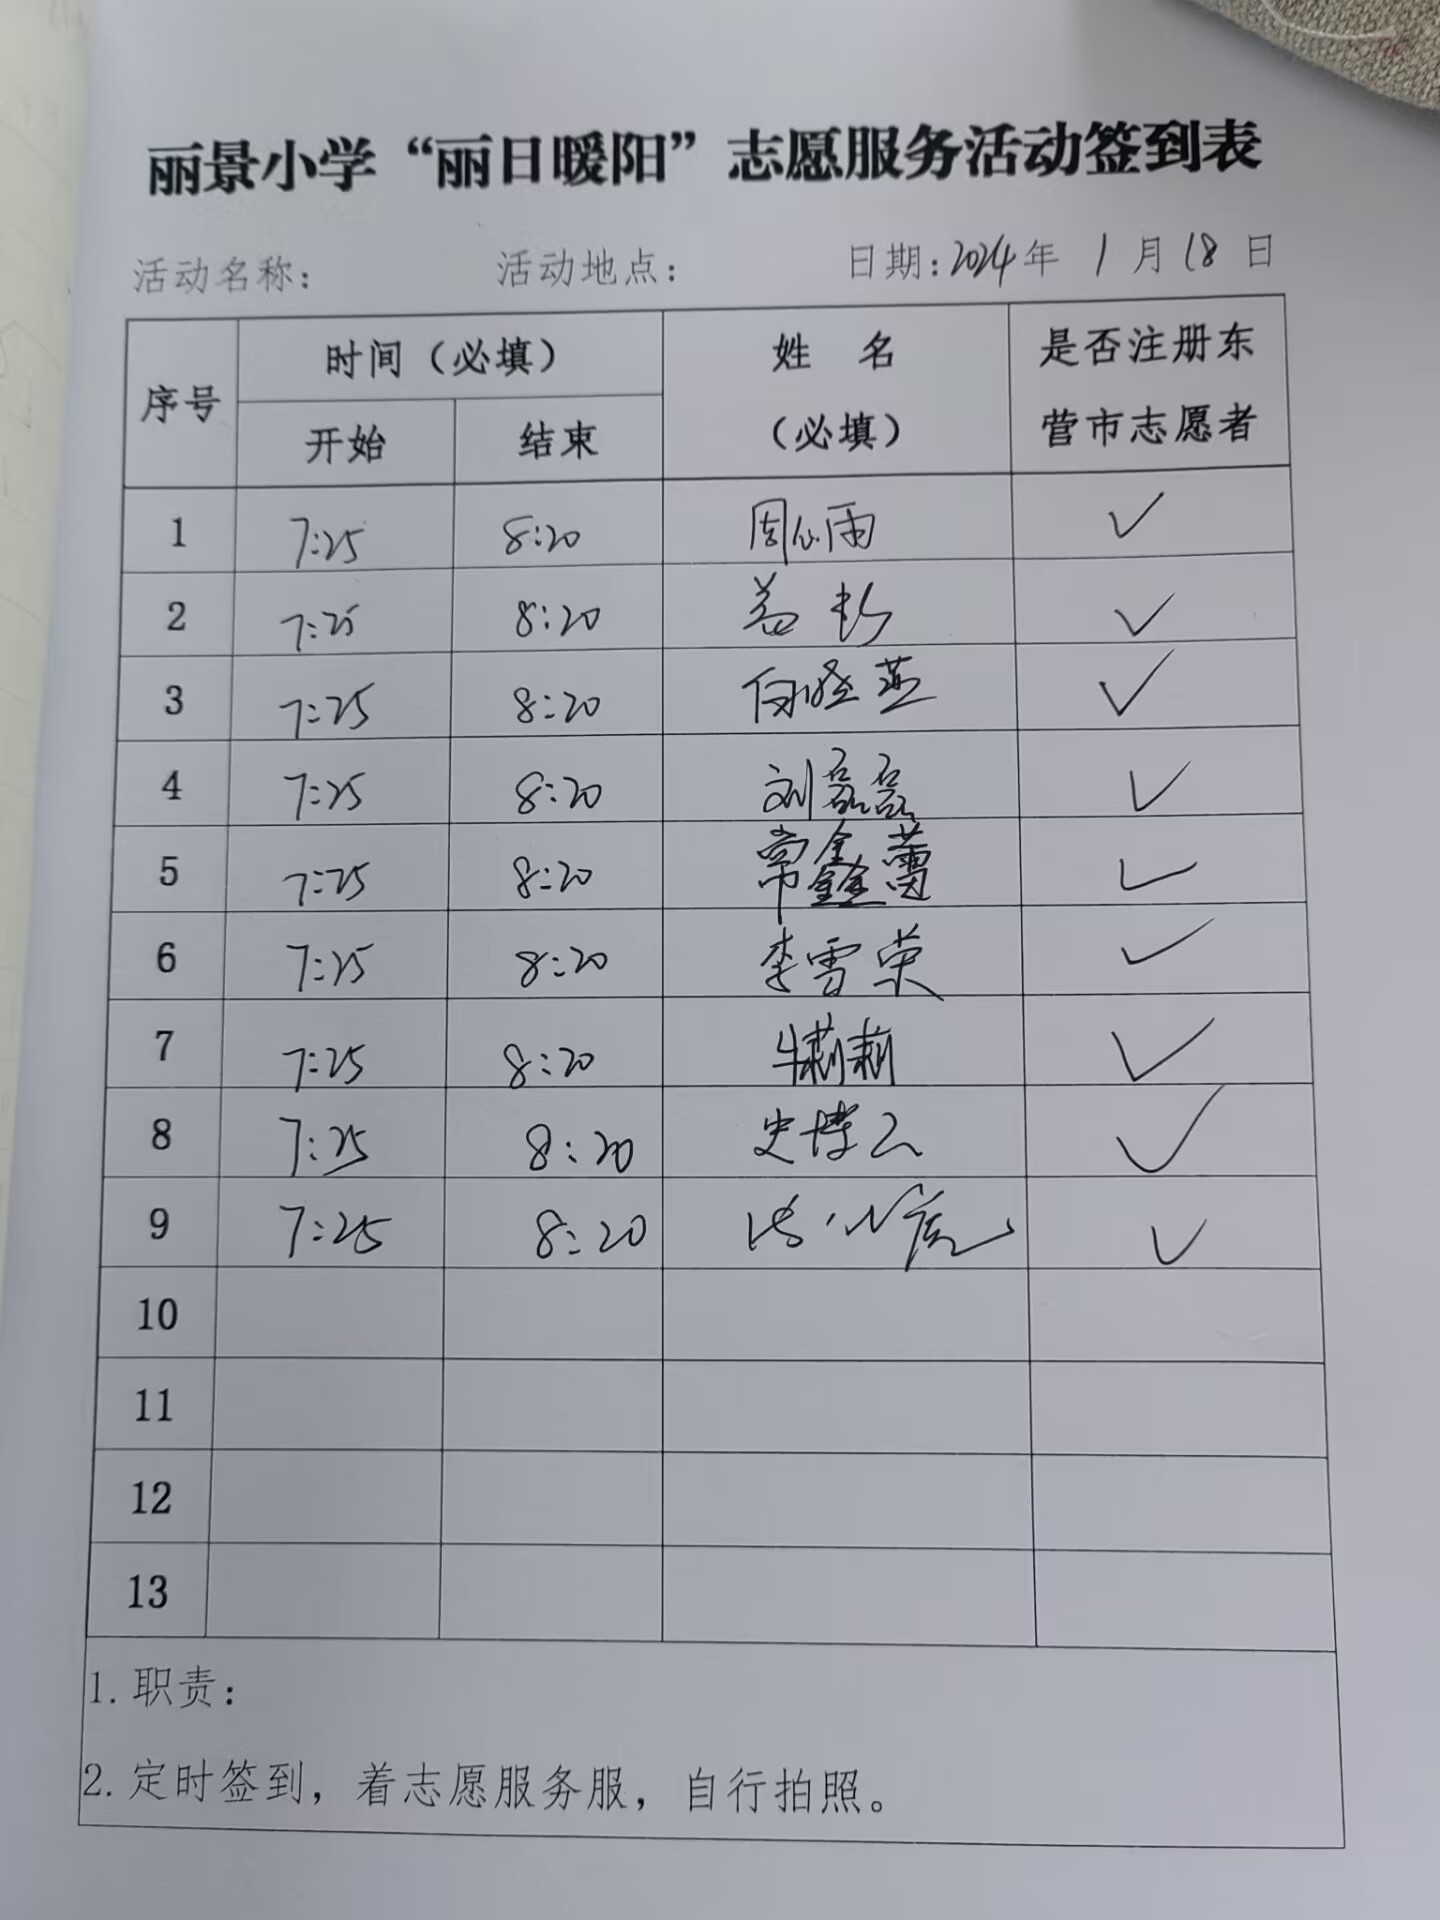 丽景小学“丽日暖阳”志愿服务活动签到表
活动名称： 活动地点： 日期：2024年 1 月 18 日
序号 时间（必填） 姓 名（必填） 是否注册东营市志愿者
开始 结束
1 7:25 8:20 周心雨 ✓
2 7:25 8:20 ✓
3 7:25 8:20 向晓燕 ✓
4 7:25 8:20 刘磊磊 ✓
5 7:25 8:20 常鑫蕾 ✓
6 7:25 8:20 李雪荣 ✓
7 7:25 8:20 牛莉莉 ✓
8 7:25 8:20 史博云 ✓
9 7:25 8:20 ✓
10
11
12
13
1. 职责：
2. 定时签到，着志愿服务服，自行拍照。